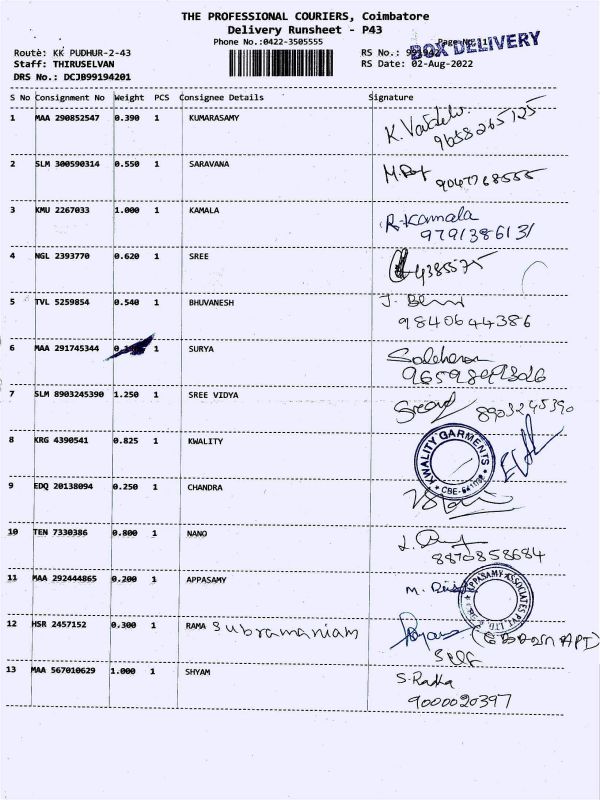 THE PROFESSIONAL COURIERS, Coimbatore
Delivery Runsheet - P43
Phone No.:0422-3505555
BOX DELIVERY
Route: KK PUDHUR-2-43
RS No.:
Staff: THIRUSELVAN
RS Date: 02-Aug-2022
DRS No.: DCJ899194201
S No Consignment No Weight PCS Consignee Details Signature
1 MAA 290852547 0.390 1 KUMARASAMY K.
9658265125
2 SLM 300590314 0.550 1 SARAVANA
3 KMU 2267033 1.000 1 KAMALA R-Kamala
9791386131
4 NGL 2393770 0.620 1 SREE
5 TVL 5259854 0.540 1 BHUVANESH J.
9840644386
6 MAA 291745344 1 SURYA
7 SLM 8903245390 1.250 1 SREE VIDYA 8903245390
8 KRG 4390541 0.825 1 KWALITY KWALITY GARMENTS
9 EDQ 20138094 0.250 1 CHANDRA
10 TEN 7330386 0.800 1 NANO
8870858684
11 MAA 292444865 0.200 1 APPASAMY M. APPASAMY ASSOCIATES PVT. LTD.
12 HSR 2457152 0.300 1 RAMA Subramaniam
Self
13 MAA 567010629 1.000 1 SHYAM S-Radha
9000020397